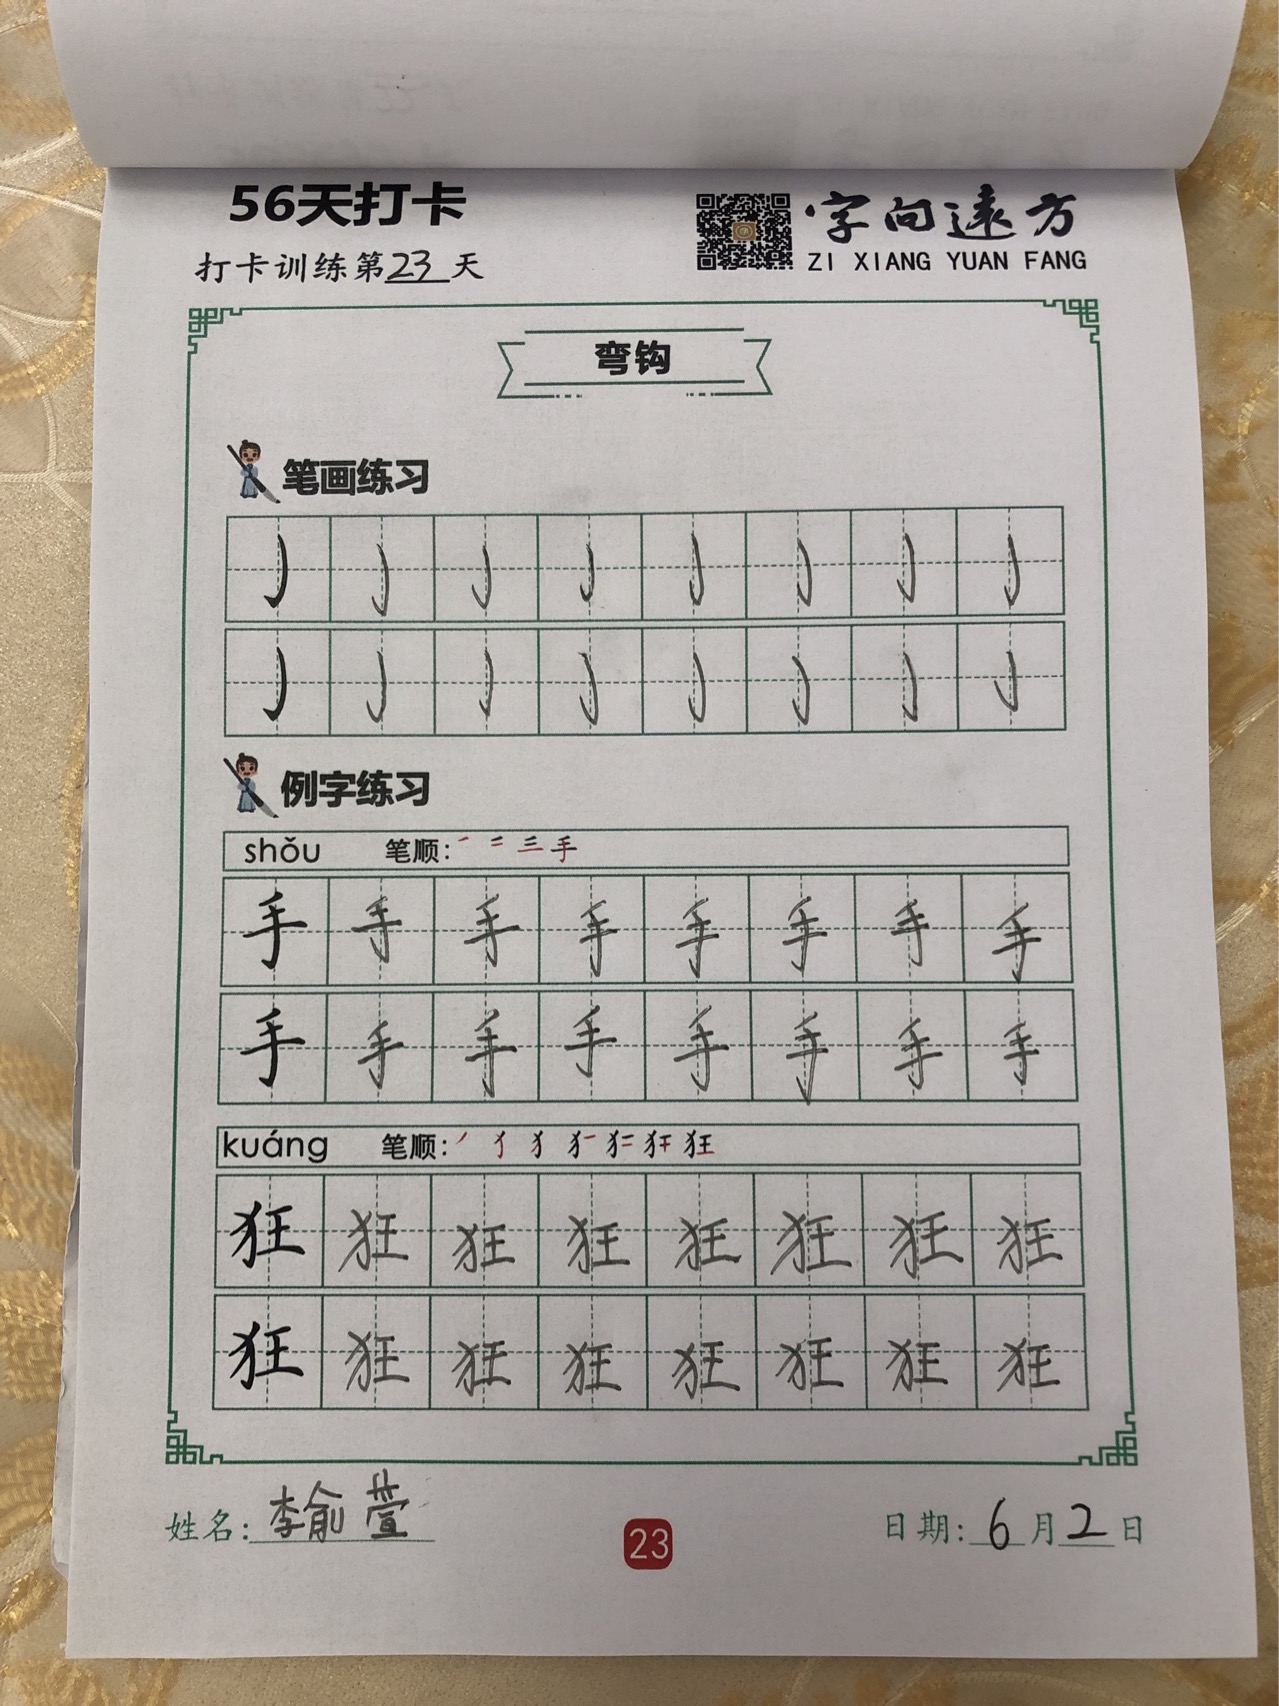 56天打卡
打卡训练第23天
字向远方
ZI XIANG YUAN FANG
弯钩
笔画练习
例字练习
shǒu 笔顺: 一 二 三 手
手 手 手 手 手 手 手 手
手 手 手 手 手 手 手 手
kuáng 笔顺:
狂 狂 狂 狂 狂 狂 狂 狂
狂 狂 狂 狂 狂 狂 狂 狂
姓名: 李俞萱
23
日期: 6月2日